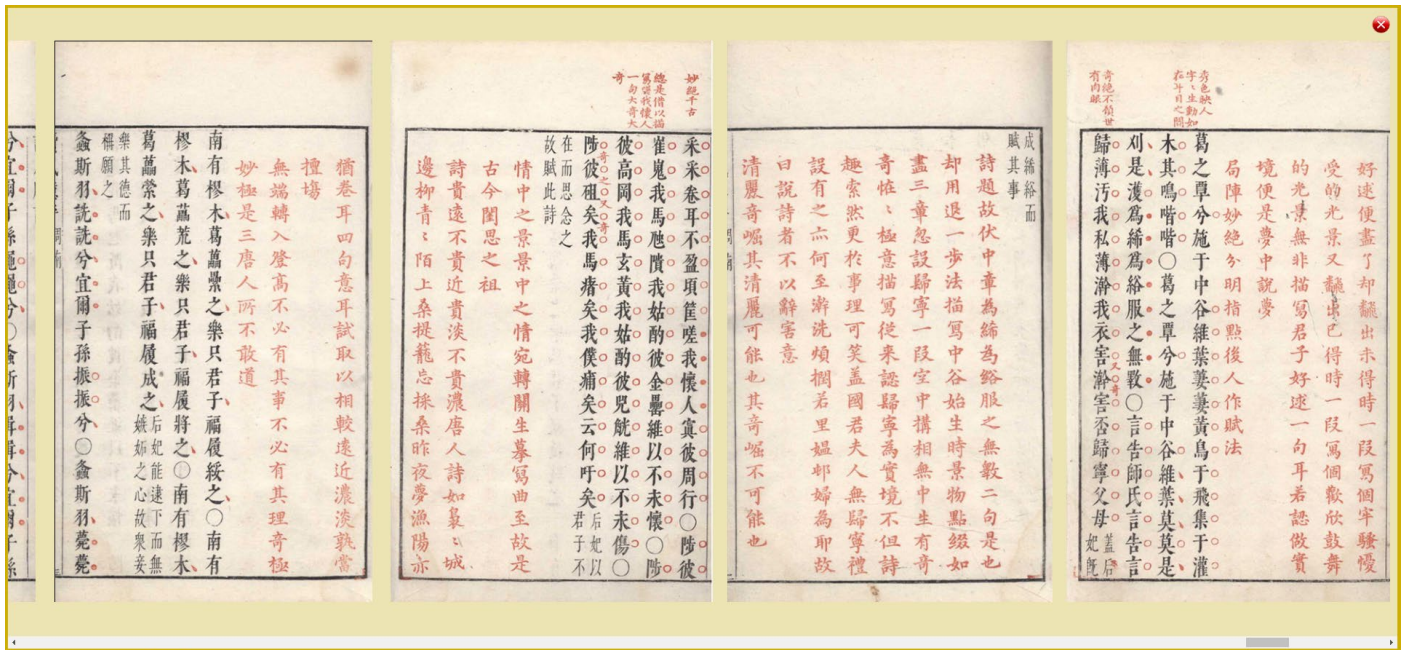 秀色映人
字〻生動如
在斗目之間
奇絕不顧世
有肉眼
好逑便盡了却翻出未得時一段寫個牢騷懮
受的光景又翻出已得時一段寫個歡欣鼓舞
的光景無非描寫君子好逑一句耳若認做實
境便是夢中說夢
局陣妙絕分明指點後人作賦法
葛之覃兮施于中谷維葉萋萋黃鳥于飛集于灌
木其鳴喈喈○葛之覃兮施于中谷維葉莫莫是
刈是濩爲絺爲綌服之無斁○言告師氏言告言
又奇
歸薄汚我私薄澣我衣害澣害否歸寧父母
蓋后
妃既
成絺綌而
賦其事
詩題故伏中章為絺為綌服之無斁二句是也
却用退一步法描寫中谷始生時景物點綴如
盡三章忽設歸寧一段空中搆相無中生有奇
奇恠〻極意描寫從来認歸寧為實境不但詩
趣索然更於事理可笑盖國君夫人無歸寧禮
設有之亦何至澣洗煩撋若里媼邨婦為耶故
曰說詩者不以辭害意
清麗奇崛其清麗可能也其奇崛不可能也
妙絕千古
總是借以描
寫嗟我懷人
一句大奇大
奇
采采卷耳不盈頃筐嗟我懷人寘彼周行○陟彼
崔嵬我馬虺隤我姑酌彼金罍維以不永懷○陟
彼高岡我馬玄黃我姑酌彼兕觥維以不永傷○
奇之又奇
陟彼砠矣我馬瘏矣我僕痡矣云何吁矣
后妃以
君子不
在而思念之
故賦此詩
情中之景景中之情宛轉關生摹寫曲至故是
古今閨思之祖
詩貴遠不貴近貴淡不貴濃唐人詩如裊〻城
邊栁青〻陌上桑提籠忘採桑昨夜夢漁陽亦
猶卷耳四句意耳試取以相較遠近濃淡孰當
擅塲
無端轉入登高不必有其事不必有其理奇極
妙極是三唐人所不敢道
南有樛木葛藟纍之樂只君子福履綏之○南有
樛木葛藟荒之樂只君子福履將之○南有樛木
葛藟縈之樂只君子福履成之
后妃能逮下而無
嫉妬之心故衆妾
樂其德而
稱願之
螽斯羽詵詵兮宜爾子孫振振兮○螽斯羽薨薨
兮宜爾子孫繩繩兮○螽斯羽揖揖兮宜爾子孫